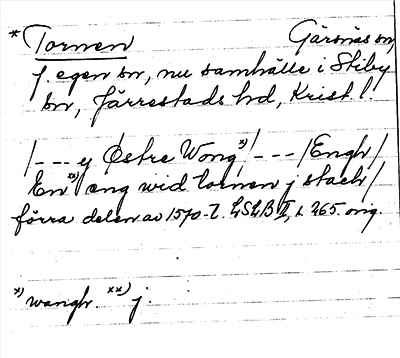 * Tornen Gärsnäs sn,
f. egen sn, nu samhälle i Stiby
sn, Järrestads hd, Krist. l.
/--- y Østre Wong *) /--- /Engh/
En **) eng wid tornen j stach/
förra delen av 1570-t. LSLB II, s. 265. orig.
*) wangh. **) j.